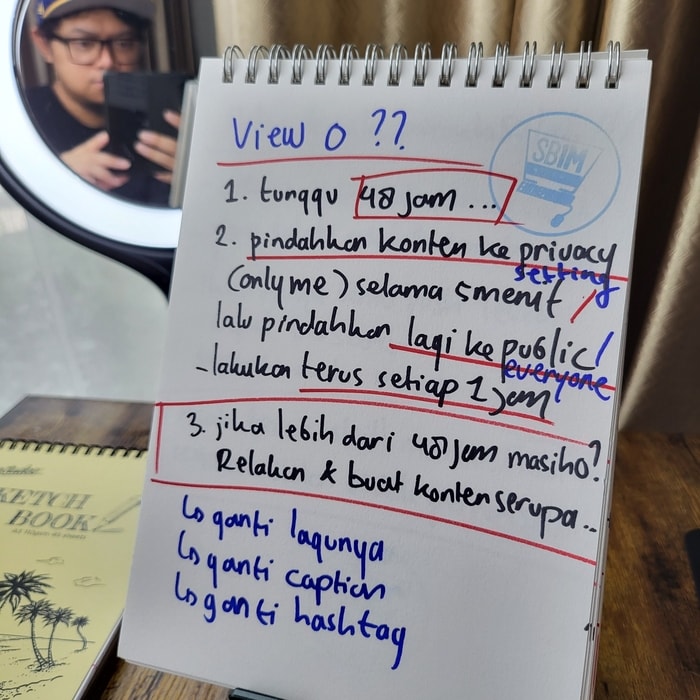 View 0 ??
SB1M
1. tunggu 48 jam ...
2. pindahkan konten ke privacy
setting
(only me) selama 5 menit /
lalu pindahkan lagi ke public/
everyone
- lakukan terus setiap 1 jam
3. jika lebih dari 48 jam masih 0?
Relakan & buat konten serupa..
↳ ganti lagunya
↳ ganti caption
↳ ganti hashtag
SKETCH
BOOK